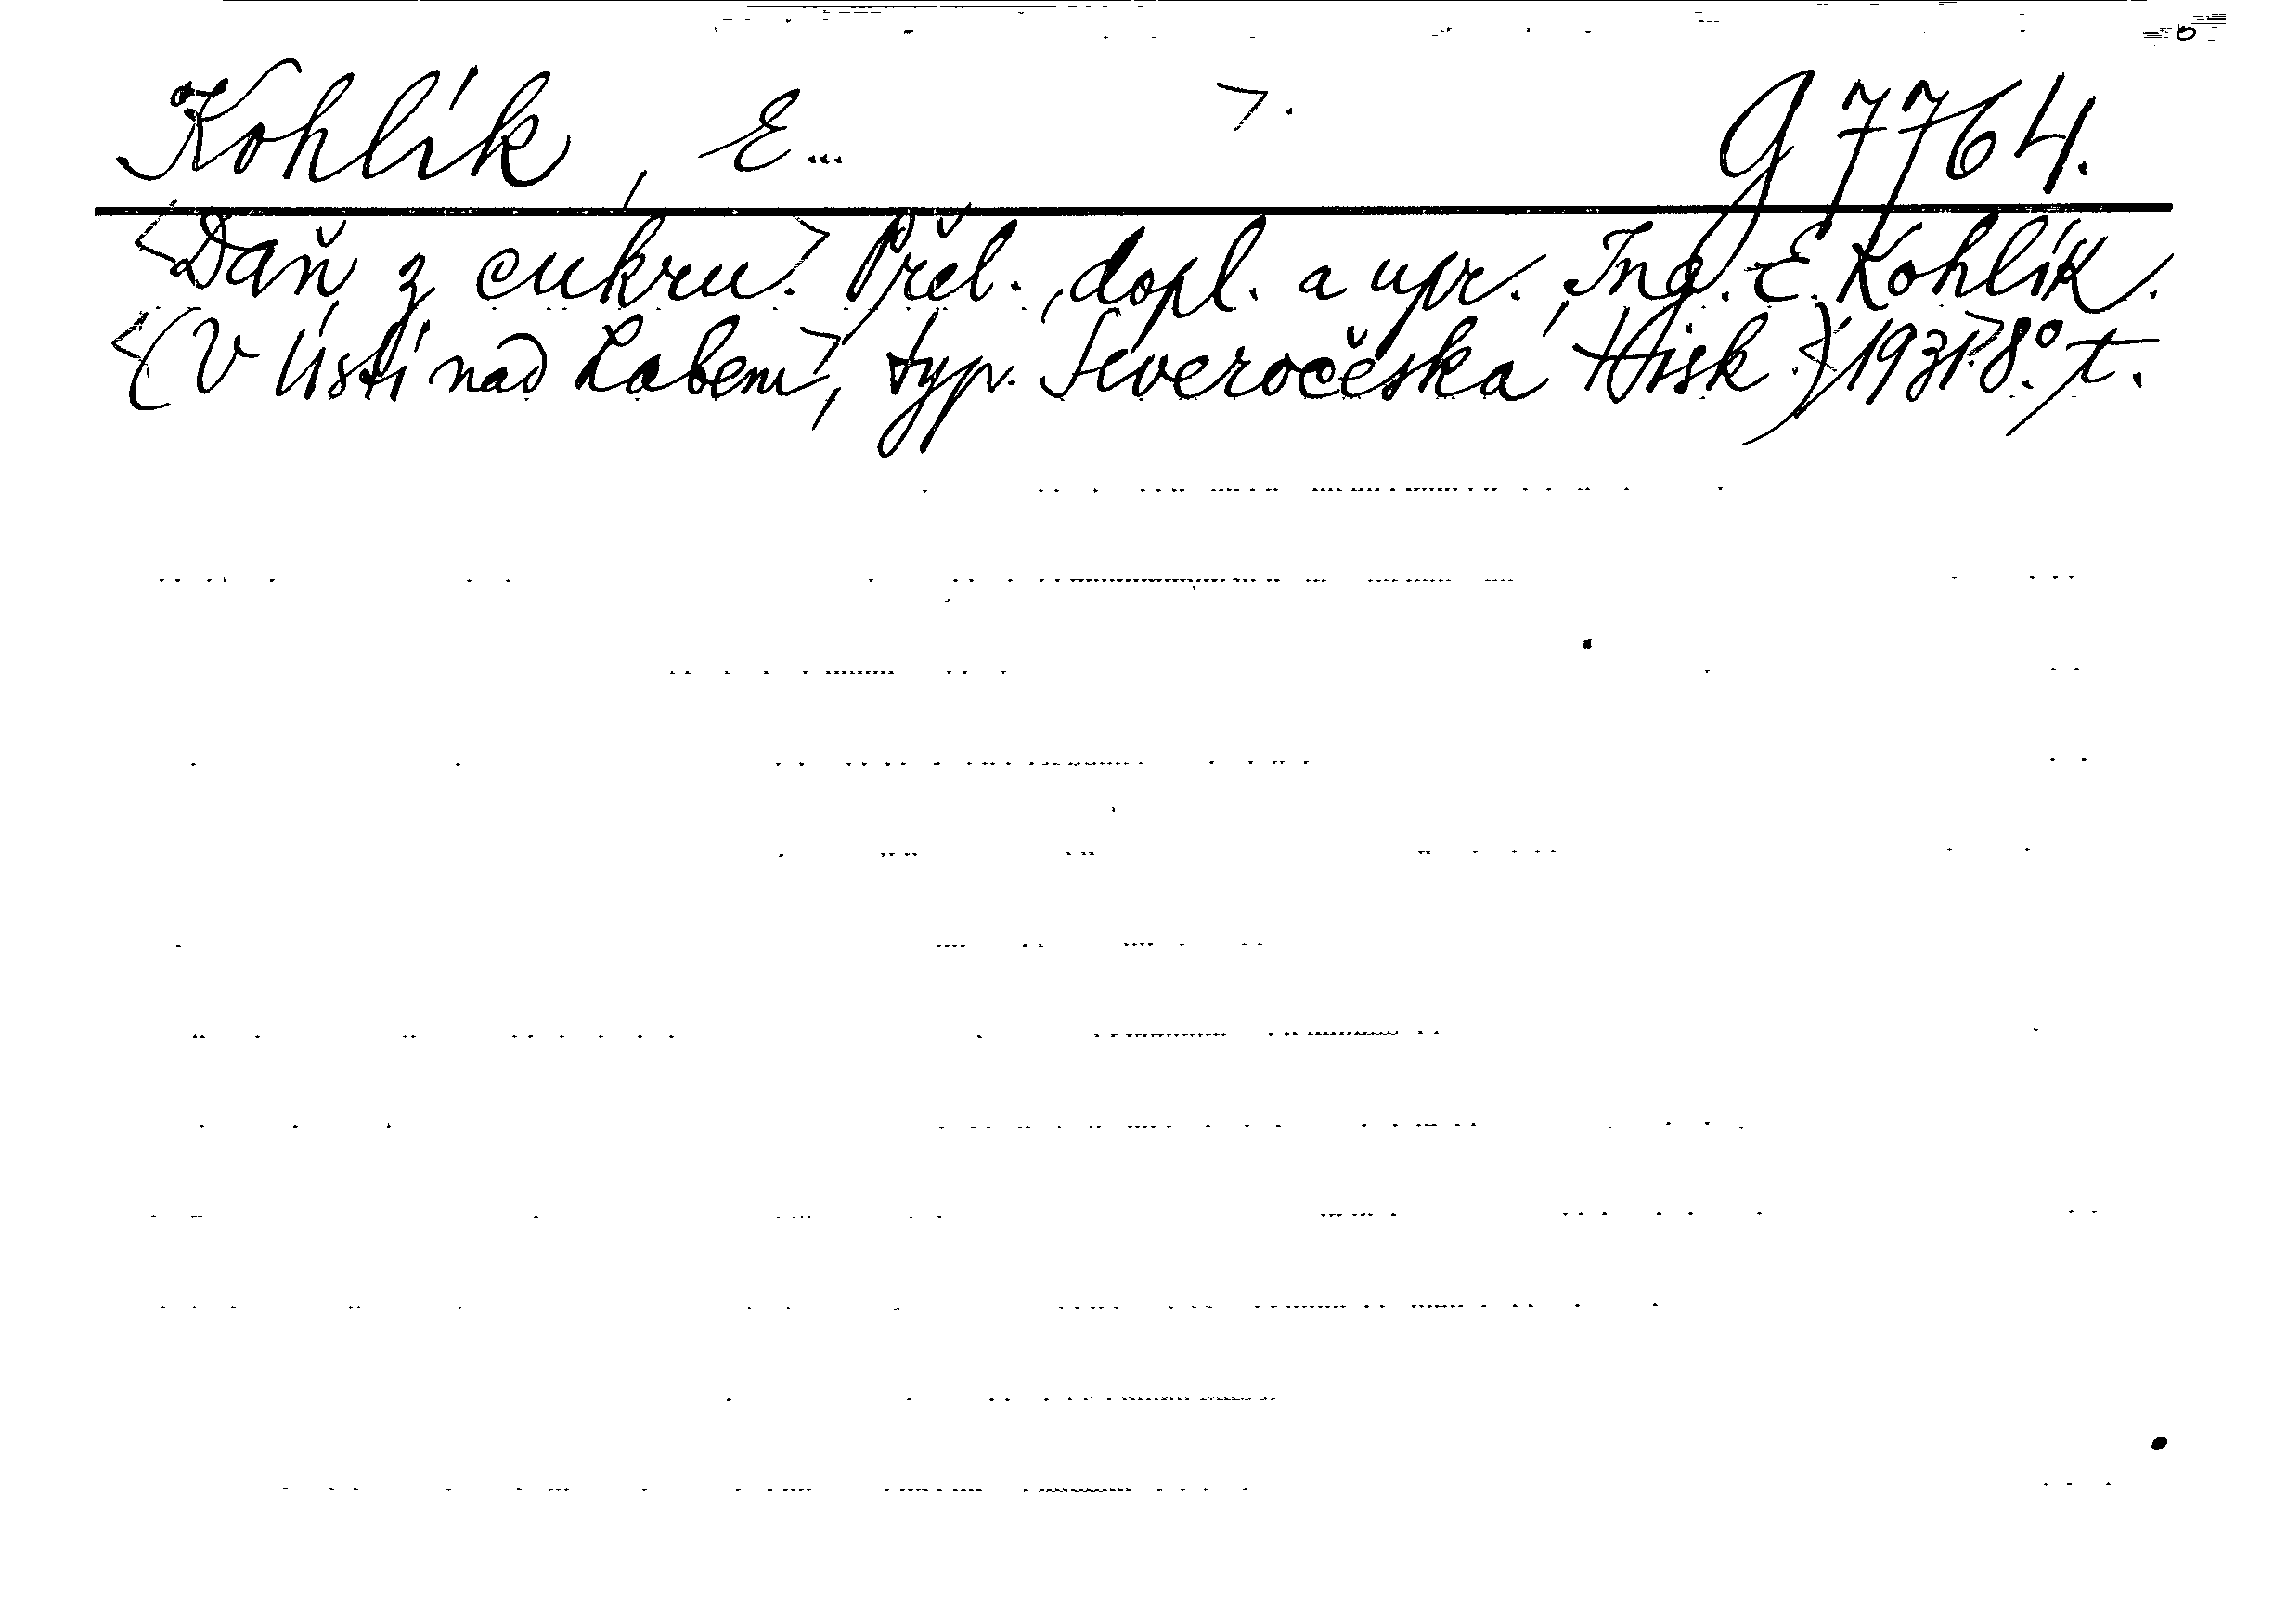 Kohlík, E... >. g 7764.
<Daň z cukru.> Přel., dopl. a upr. Ing. E. Kohlík.
<(V Ústí nad Labem>, typ. Severočeská tisk.) <1931>. 8°. t.